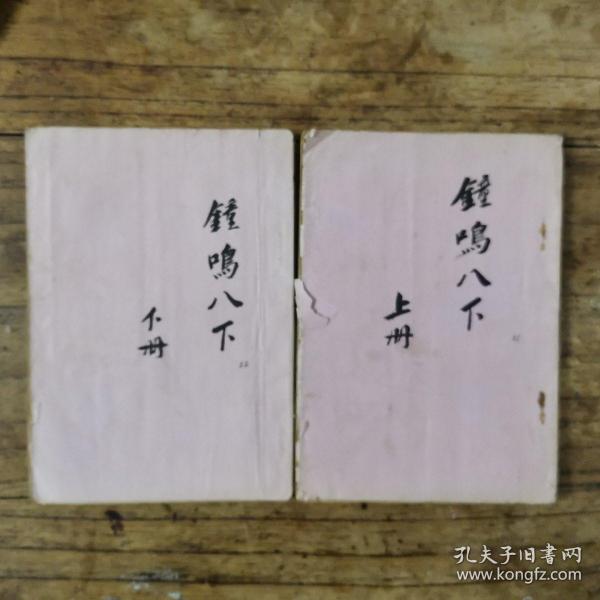 鐘鳴八下
下册
22
鐘鳴八下
上册
孔夫子旧书网
www.kongfz.com